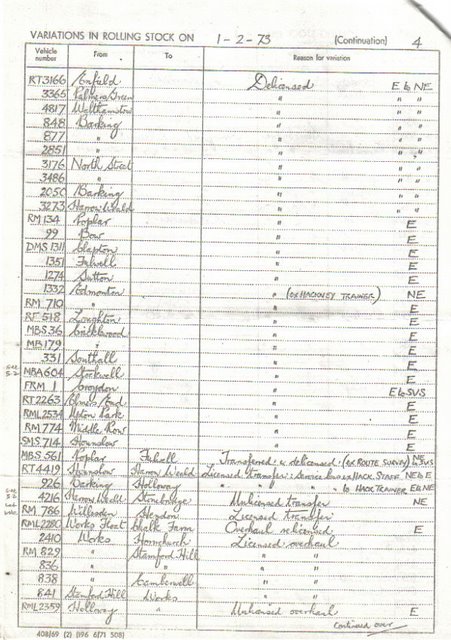 VARIATIONS IN ROLLING STOCK ON 1-2-73 (Continuation) 4
Vehicle number From To Reason for variation
RT3166 Enfield Delicensed E to NE
3365 Palmers Green " " "
4817 Walthamstow " " "
848 Barking " " "
877 " " " "
2851 " " " "
3176 North Street " " "
3486 " " " "
2050 Barking " " "
3273 Harrow Weald " " "
RM 134 Poplar " E
99 Bow " E
DMS 1311 Clapton " E
1351 Fulwell " E
1274 Sutton " E
1332 Edmonton " (ex HACKNEY TRAINER) NE
RM 710 " " E
RF 518 Loughton " E
MBS 36 Cricklewood " E
MB 179 " " E
331 Southall " E
MBA 604 Stockwell " E
FRM 1 Croydon " E to SUS
RT 2263 Elmers End " E
RML 2534 Upton Park " E
RM 774 Middle Row " E
SMS 714 Hounslow " E
MBS 561 Poplar Fulwell Transferred & delicensed (ex ROUTE SURVEY) NE to SUS
RT 4419 Hounslow Harrow Weald Licensed Transfer: Service bus ex HACK. STAFF NE to E
926 Barking Holloway " " " to HACK TRAINER E to NE
4216 Harrow Weald Stonebridge Unlicensed transfer NE
RM 786 Willesden Hendon Licensed transfer
RML 2280 Works Float Chalk Farm Overhaul relicensed E
2410 Works Hornchurch Licensed overhaul
RM 829 " Stamford Hill "
836 " " "
838 " Camberwell "
841 Stamford Hill Works "
RML 2359 Holloway " Unlicensed overhaul E
Continued over
408/69 (2) (196 6/71 508)